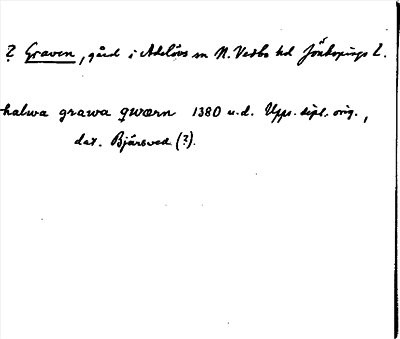 ? Graven, gård i Adelövs sn N. Vedbo hd Jönköpings l.
halwa grawa qwærn 1380 u.d. Upps. dipl. orig.,
dat. Bjärsved (?).